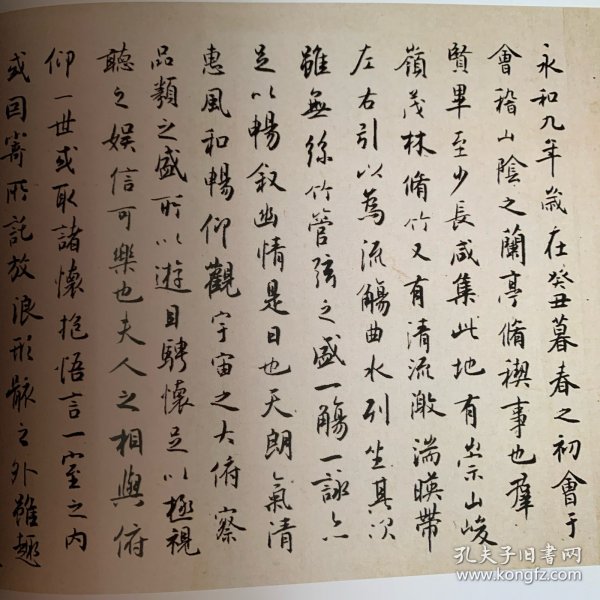 永和九年歲在癸丑暮春之初會于
會稽山陰之蘭亭脩禊事也羣
賢畢至少長咸集此地有崇山峻
嶺茂林脩竹又有清流激湍暎帶
左右引以為流觴曲水列坐其次
雖無絲竹管弦之盛一觴一詠亦
足以暢叙幽情是日也天朗氣清
惠風和暢仰觀宇宙之大俯察
品類之盛所以遊目騁懷足以極視
聽之娛信可樂也夫人之相與俯
仰一世或取諸懷抱悟言一室之內
或因寄所託放浪形骸之外雖趣
孔夫子旧书网
www.kongfz.com